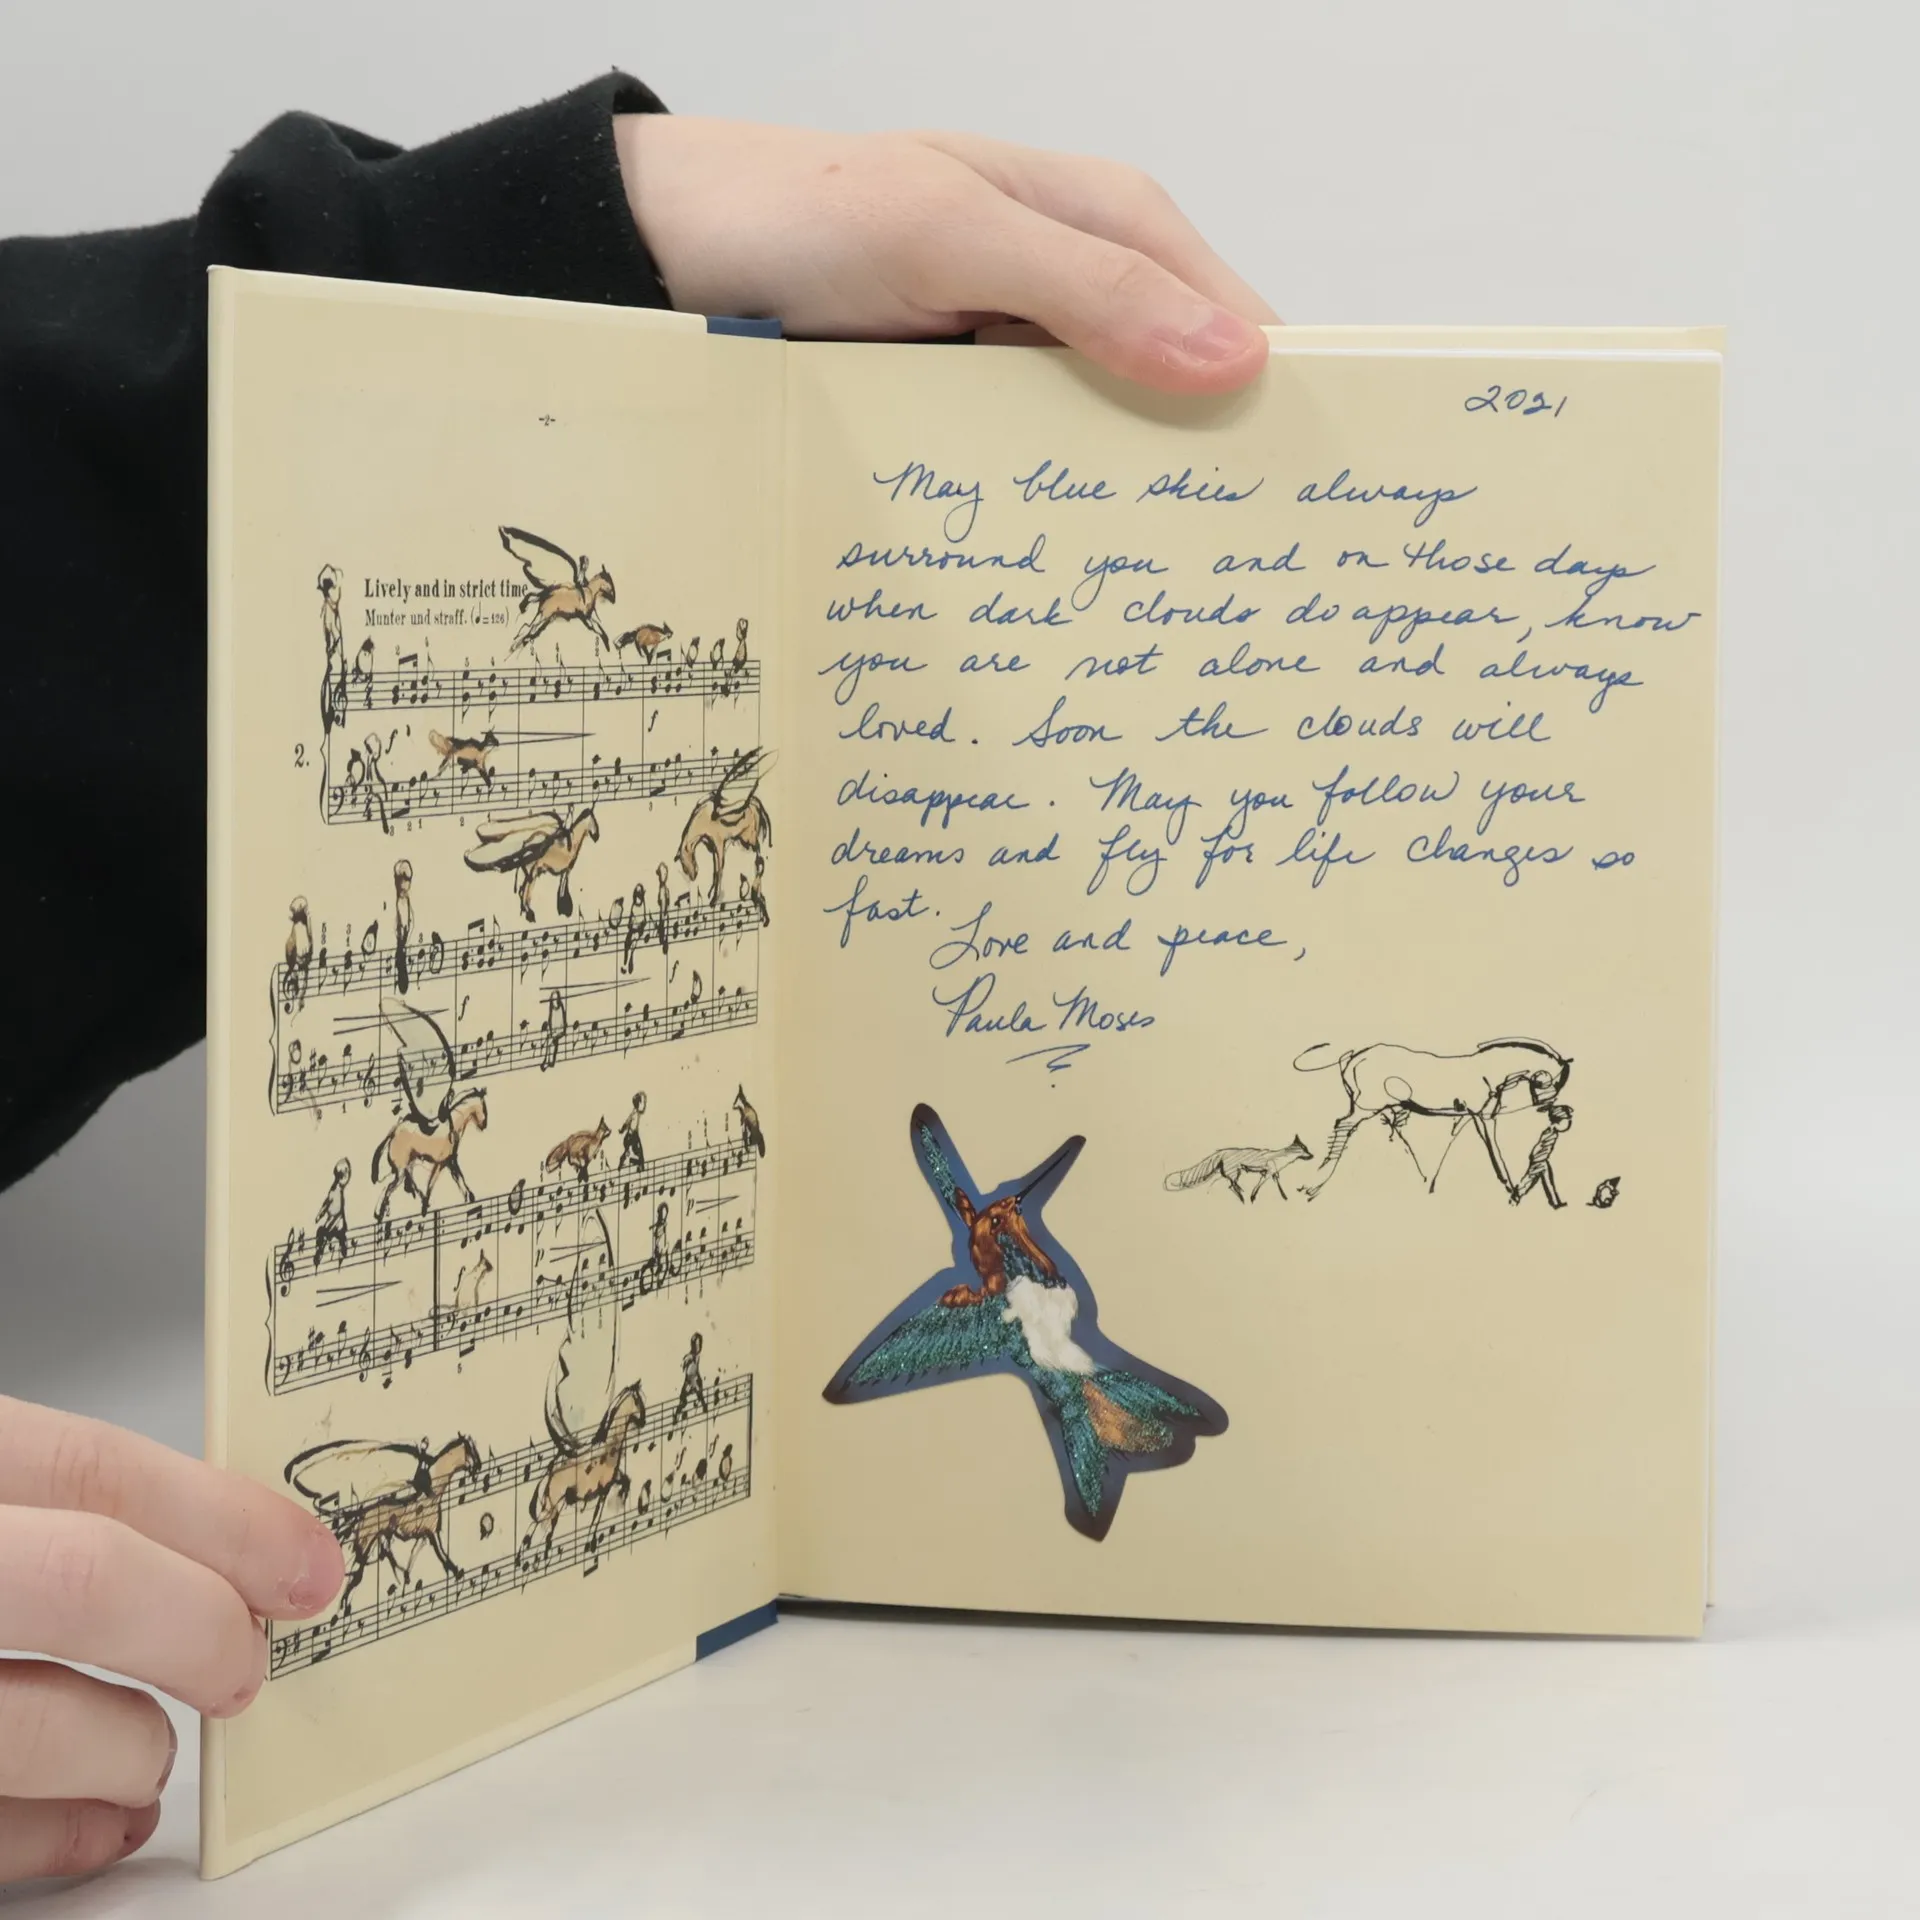 -2-
Lively and in strict time
Munter und straff. (♩=126)
2.
2021
May blue skies always
surround you and on those days
when dark clouds do appear, know
you are not alone and always
loved. Soon the clouds will
disappear. May you follow your
dreams and fly for life changes so
fast.
Love and peace,
Paula Moses